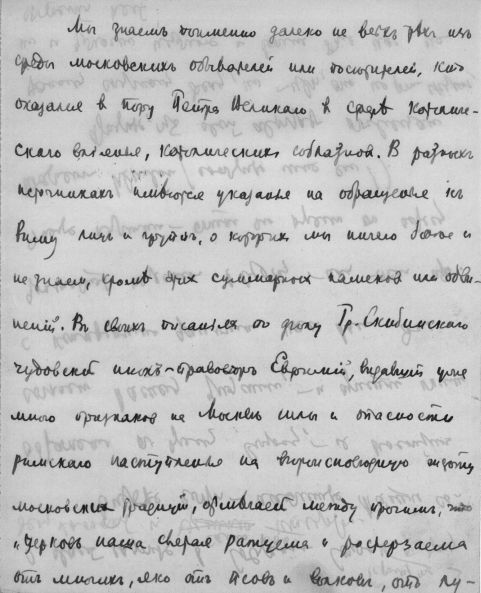 Мы знаемъ поименно далеко не всѣхъ тѣхъ изъ
среды московскихъ обывателей или посетителей, кто
оказался в пору Петра Великаго в сфере католиче-
скаго вліянья, католических соблазнов. В разныхъ
источниках имеются указанья на обращенье къ
Риму лиц и групп, о которых мы ничего более и
не знаем, кромѣ этих суммарных намеков или обви-
нений. Въ своихъ писаніях по делу Гр. Скибинскаго
чудовский инокъ-правщикъ Евфимий, видавший уже
много признаков на Москвѣ силы и опасности
римскаго наступленья на
московских традиций, объявляет между прочимъ, что
"церковь наша ратуема и росхерзаема
отъ многих, яко отъ псовъ и волковъ, отъ лу-